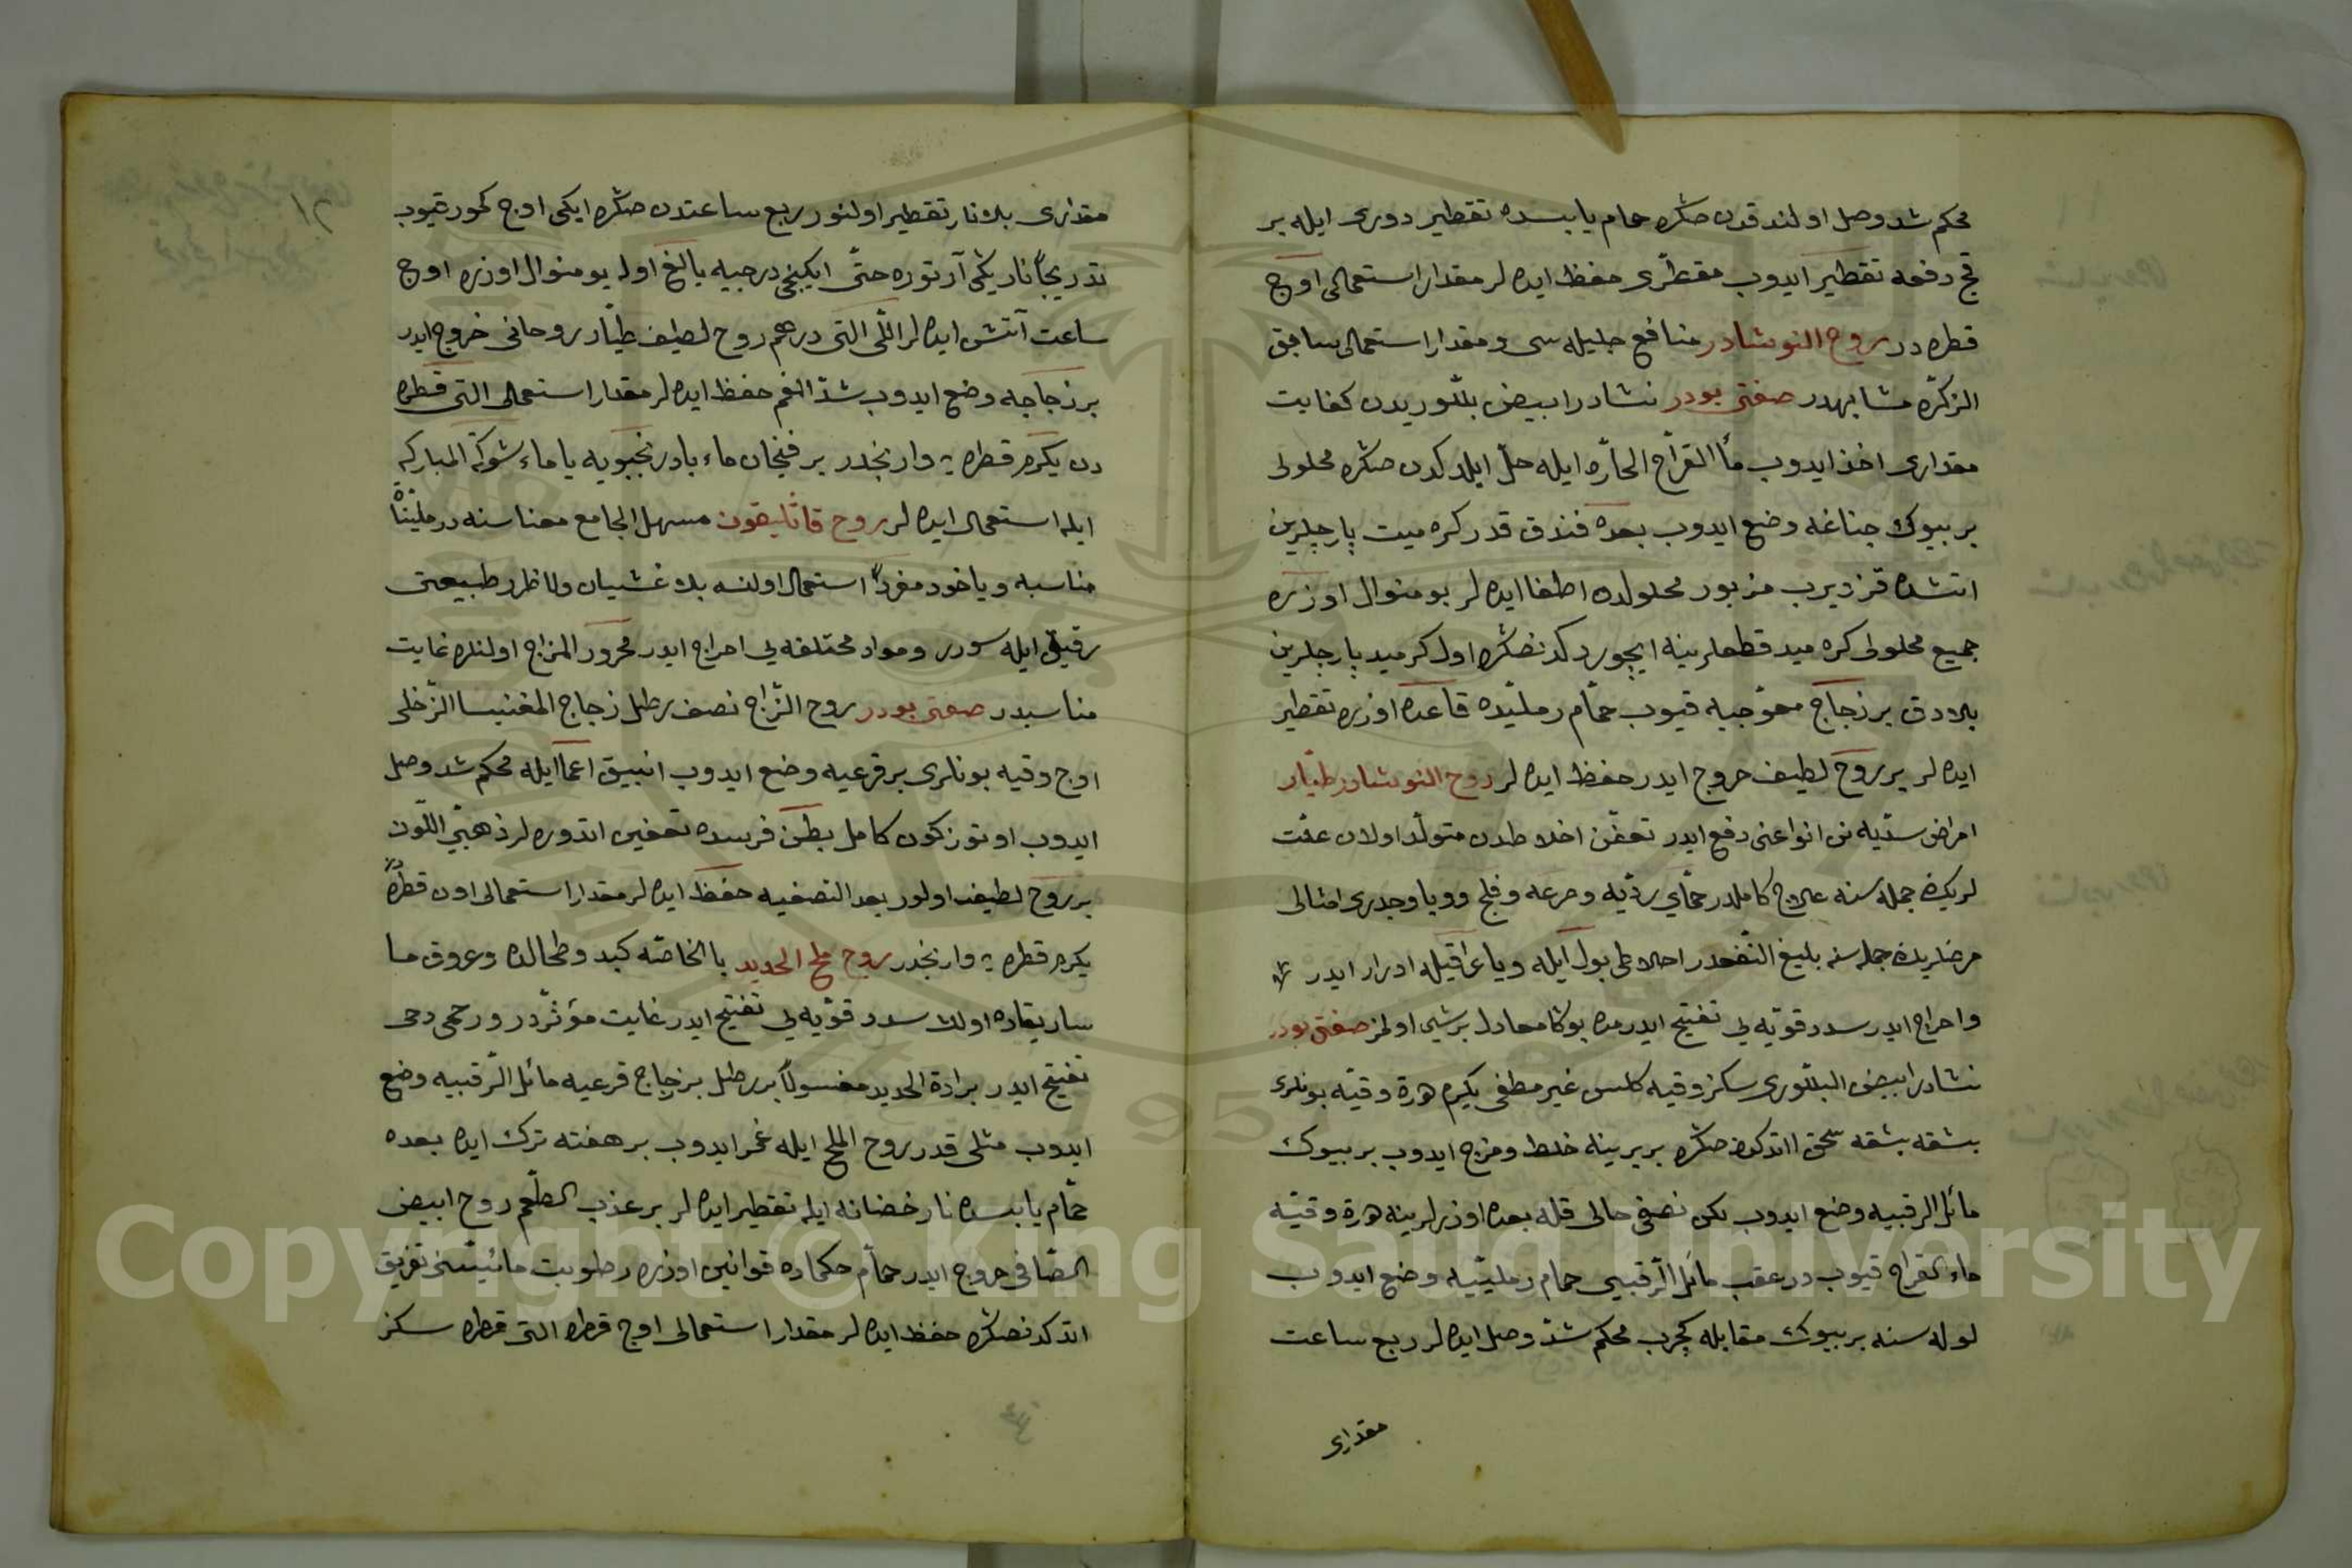 محكم شد وصل اولندقدن صكره حمام يابسده تقطير دورى ايله بر
قج دفعه تقطير ايدوب مقطّرى حفظ ايده لر مقدار استعمالى اوج
قطره در روح النوشادر منافع جليله سى و مقدار استعمالى سابق
الذكره مشابهدر صفتى بودر نشادر ابيض بلّوريدن كفايت
مقدارى اخذ ايدوب مأ القراح الحارّه ايله حلّ ايلدكدن صكره محلولى
بر بيوك چناغه وضع ايدوب بعده فندق قدر كره ميت پارچلرين
اتشده قزديرب مزبور محلولده اطفا ايده لر بو منوال اوزره
جميع محلولى كره ميد قطعلرينه ايچوردكدنصكره اول كرميد پارچلرين
بلادق بر زجاج معوّجيه قيوب حمّام رمليّده قاعده اوزره تقطير
ايده لر بر روح لطيف خروج ايدر حفظ ايده لر روح النوشادر طيّار
امراض سدّيه نى انواعنى دفع ايدر تعفّن اخلاطدن متولّد اولان علّت
لريكه جمله سنه علاج كاملدر حمّاى رديّه وصرعه وفلج ووبا وجدرى امثالى
مرضلريده جمله سنه بليغ النّفعدر اخلاطى بول ايله ويا عراقيله ادرار ايدر
واخراج ايدر سدد قويّه لى تفتيح ايدر مده بوكا معادل برشى اولمز صفتى بودر
نشادر ابيض البلّورى سكز وقيه كلس غير مطفى يكرم درة وقيّه بونلرى
بشقه بشقه سحق اتدكدن صكره بر برينه خلط ومزج ايدوب بر بيوك
مائل الرقبيه وضع ايدوب لكن نصفى خالى قله بعده اوزرلرينه درة وقيّه
ماء القراح قيوب در عقب مائل الرّقبيى حمام رمليّيه وضع ايدوب
لوله سنه بر بيوك مقابله كچرب محكم شدّ وصل ايده لر ربع ساعت
مقدارى
١٢
مقدارى بلا نار تقطير اولنور ربع ساعتدن صكره ايكى اوج كمور قيوب
تدريجاً ناريكى آرتوره حتّى ايكنجى درجيه بالغ اوله بو منوال اوزره اوج
ساعت آتش ايده لر اللّى التى درهم روح لطيف طيّار روحانى خروج ايدر
بر زجاجه وضع ايدوب شدّ الفم حفظ ايده لر مقدار استعمالى التى قطره
دن يكرم قطره يه وارنجدر بر فنجان ماء بادرنجبويه يا ماء شوكة المباركه
ايله استعمال ايده لر روح قاثليقون مسهل الجامع معناسنه در مليّناة
مناسبه ويا خود مفرداً استعمال اولنسه بلا غشيان ولا ظرر طبيعتى
رقيق ايله سورر ومواد مختلفه لى اخراج ايدر محرور المزاج اولنلره غايت
مناسبدر صفتى بودر روح الزّاج نصف رطل زجاج المغنيسا الزّحلى
اوج وقيه بونلرى بر قرعيه وضع ايدوب انبيق اعما ايله محكم شد وصل
ايدوب اوتوز كون كامل بطن فرسده تعفين اتدوره لر ذهبىّ اللّون
بر روح لطيف اولور بعد التصفيه حفظ ايده لر مقدار استعمالى اون قطره دن
يكرم قطره يه وارنجدر روح ملح الحديد باالخاصّه كبد وطحالده وعروق ما
ساريقاده اولان سدد قويّه لى تفتيح ايدر غايت مؤثّردر ورحمى دحى
تفتيح ايدر برادة الحديد مغسولاً بر رطل بر زجاج قرعيه مائل الرّقبيه وضع
ايدوب مثلى قدر روح الملح ايله غمر ايدوب بر هفته ترك ايده بعده
حمّام يابسده نار خضانه ايله تقطير ايده لر بر عذب الطّعم روح ابيض
الصّافى خروج ايدر حمّام حكماده قوانين اوزره رطوبت مائيّتنى تفريق
اتدكدنصكره حفظ ايده لر مقدار استعمالى اوج قطره التى قطره سكز
Copyright © King Saud University
1957